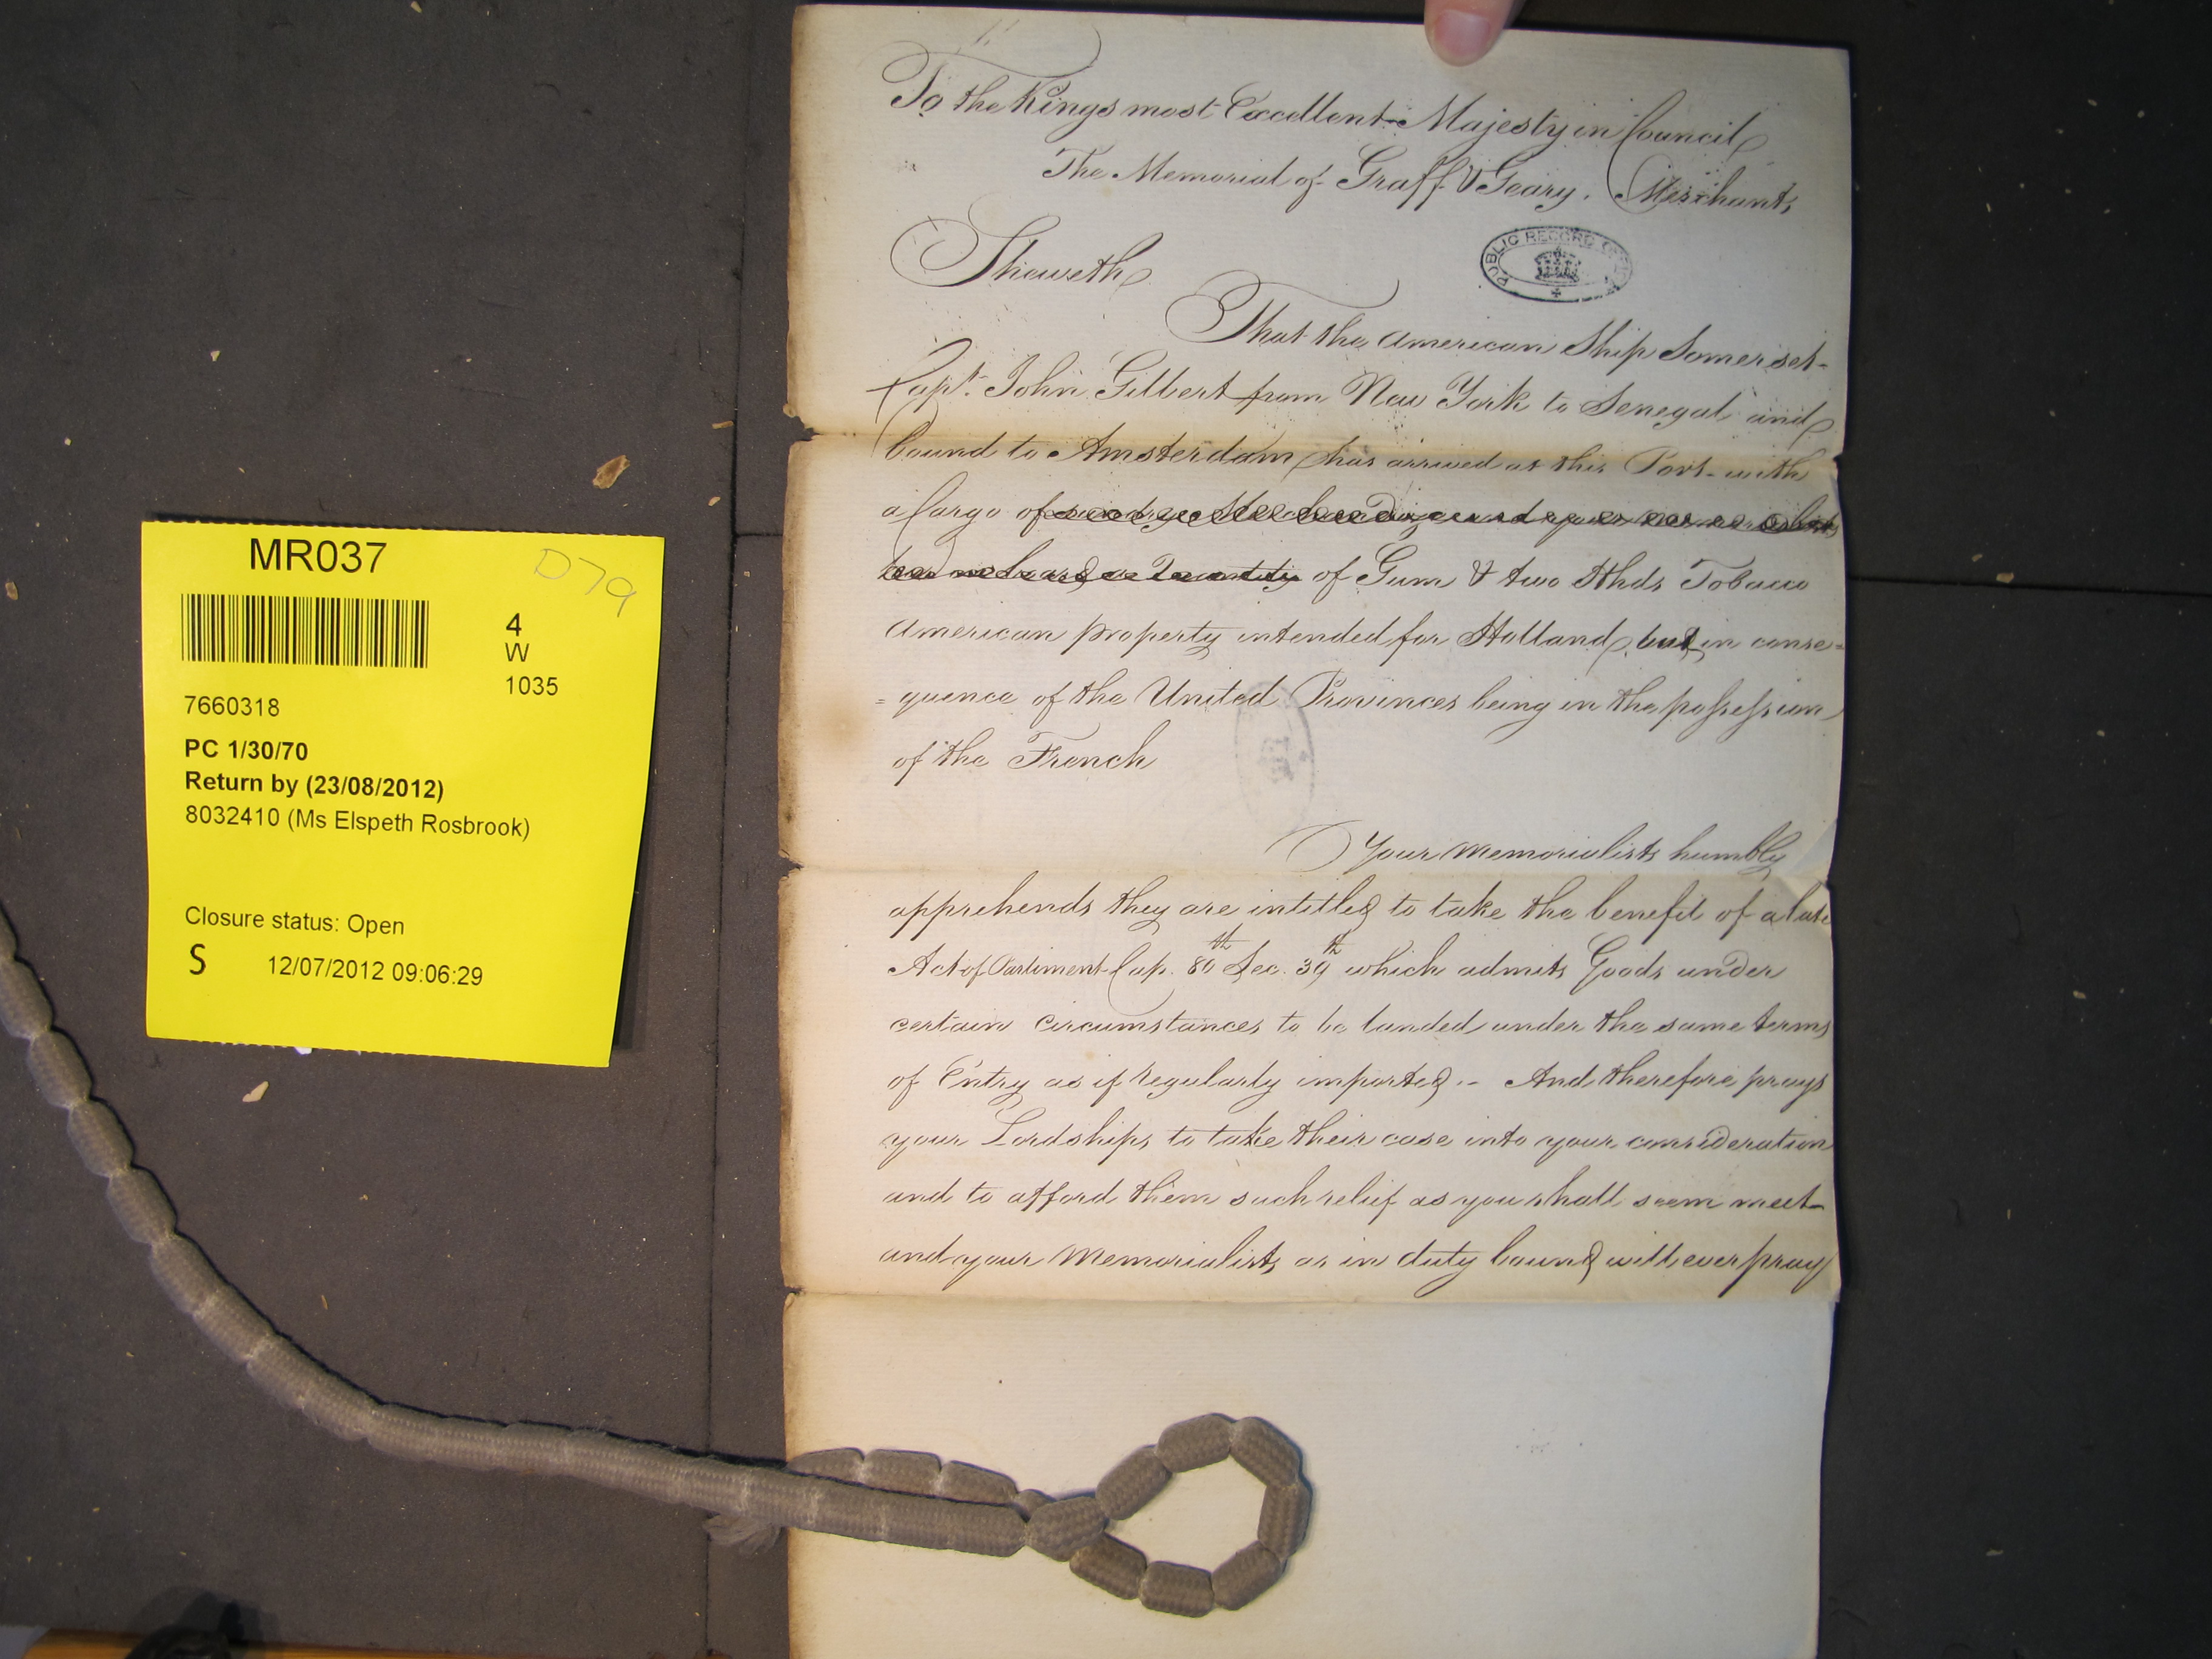 MR037
D79
4
W
1035
7660318
PC 1/30/70
Return by (23/08/2012)
8032410 (Ms Elspeth Rosbrook)
Closure status: Open
S 12/07/2012 09:06:29
To the Kings most Excellent Majesty in Council
The Memorial of Graff & Geary. Merchants
PUBLIC RECORD OFFICE
Sheweth
That the American Ship Somerset
Capt. John Gilbert from New York to Senegal and
bound to Amsterdam has arrived at this Port with
a Cargo of
of Gum & two Hhds Tobacco
American property intended for Holland, but in conse=
=quence of the United Provinces being in the possession
of the French
Your Memorialists humbly
apprehends they are intitled to take the benefit of a late
Act of Parliment Cap. 80th Sec. 39th which admits Goods under
certain circumstances to be landed under the same terms
of Entry as if regularly imported .- And therefore prays
your Lordships to take their case into your consideration
and to afford them such relief as you shall seem meet
and your Memorialists as in duty bound will ever pray